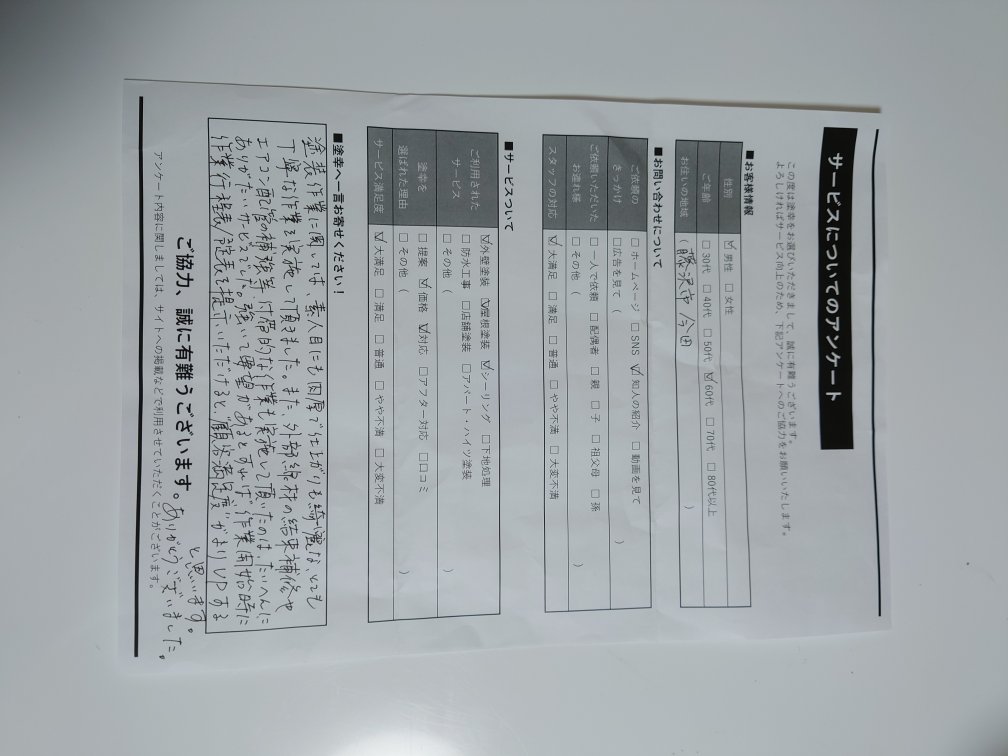 サービスについてのアンケート
この度は塗幸をお選びいただきまして、誠に有難うございます。
よろしければサービス向上のため、下記アンケートへのご協力をお願いいたします。
■お客様情報
性別 ☑男性 □女性
ご年齢 □30代 □40代 □50代 ☑60代 □70代 □80代以上
お住いの地域 (藤沢市今田)
■お問い合わせについて
ご依頼のきっかけ □ホームページ □SNS ☑知人の紹介 □動画を見て
□広告を見て ( )
ご依頼いただいたお連れ様 □一人で依頼 □配偶者 □親 □子 □祖父母 □孫
□その他 ( )
スタッフの対応 ☑大満足 □満足 □普通 □やや不満 □大変不満
■サービスついて
ご利用されたサービス ☑外壁塗装 ☑屋根塗装 ☑シーリング □下地処理
□防水工事 □店舗塗装 □アパート・ハイツ塗装
□その他 ( )
塗幸を選ばれた理由 □提案 ☑価格 ☑対応 □アフター対応 □口コミ
□その他 ( )
サービス満足度 ☑大満足 □満足 □普通 □やや不満 □大変不満
■塗幸へ一言お寄せください!
塗装作業に関しては、素人目にも肉厚で仕上がりも綺麗な、とても
丁寧な作業を実施して頂きました。また、外部線材の結束補修や
エアコン配管の補強等、付帯的な作業も実施して頂いたのは、たいへんに
ありがたいサービスでした。強いて要望があるとすれば、作業開始時に
作業行程表/確認表を提示いただけると、顧客満足度がよりUPする
と思います。
ありがとうございました。
ご協力、誠に有難うございます。
アンケート内容に関しましては、サイトへの掲載などで利用させていただくことがございます。